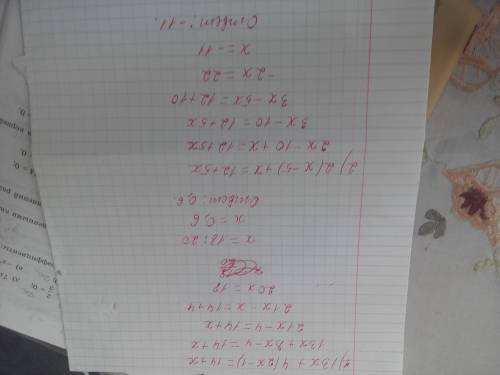 1) 13x + 4(2x-1) = 14+x
13x + 8x - 4 = 14 + x
21x - 4 = 14 + x
21x - x = 14 + 4
20x = 18
x = 18:20
x = 0,9
Ответ: 0,9.
2) 2(x-5)+x = 12+5x
2x - 10 + x = 12+5x
3x - 10 = 12 + 5x
3x - 5x = 12 + 10
-2x = 22
x = -11
Ответ: -11.